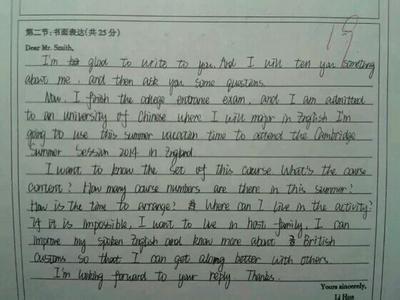 第二节:书面表达(共25分)
19
Dear Mr. Smith,
I'm glad to write to you. And I will tell you something
about me, and then ask you some questions.
Now, I finish the college entrance exam, and I am admitted
to an university of Chinese where I will major in English I'm
going to use this summer vacation time to attend the Cambridge
Summer Session 2014 in England
I want to know the set of this course What's the course
content? How many course numbers are there in this summer?
How is the time to arrange? Where can I live in the activity?
If it is impossible, I want to live in host family, I can
improve my spoken English and know more about British
customs so that I can get along better with others.
I'm looking forward to your reply Thanks.
Yours sincerely,
Li Hua